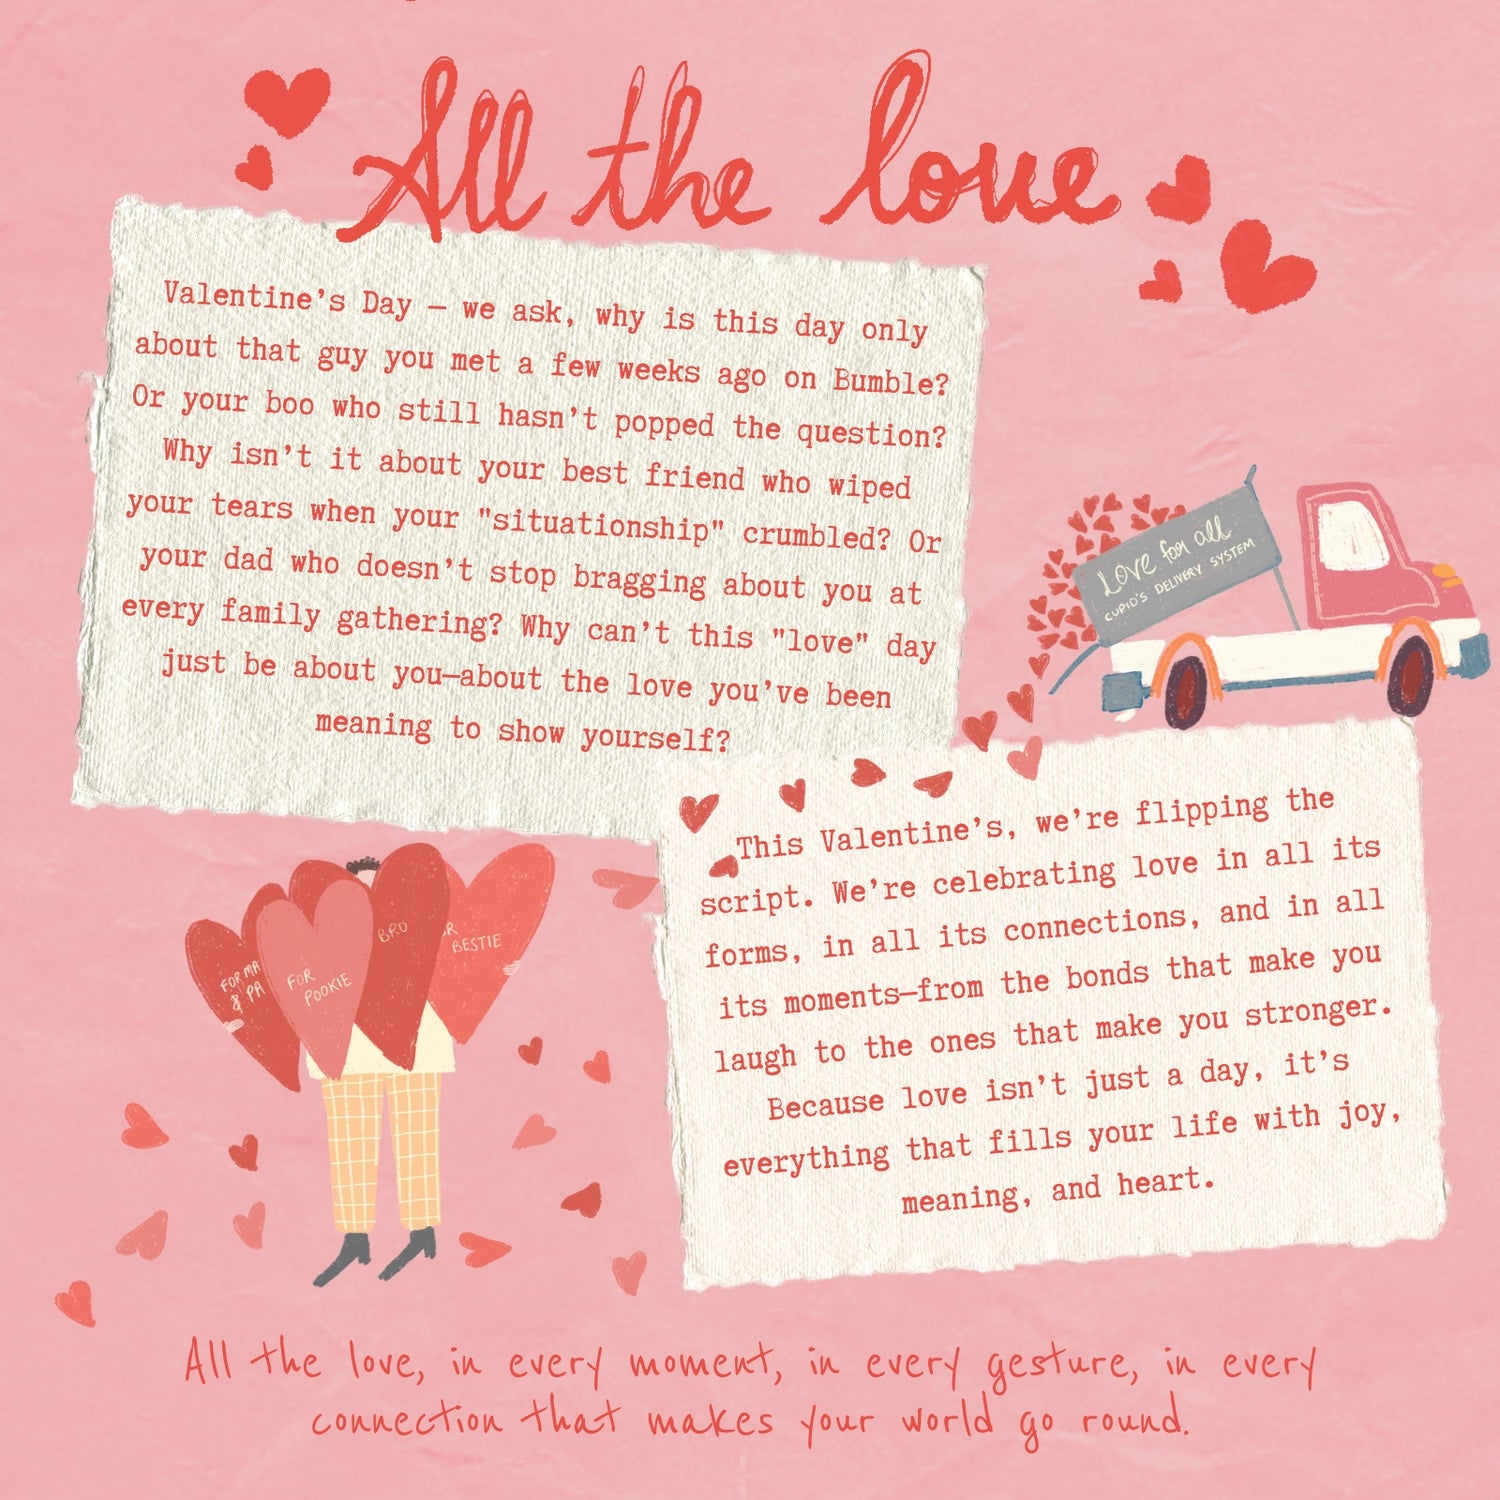 All the love
Valentine's Day — we ask, why is this day only
about that guy you met a few weeks ago on Bumble?
Or your boo who still hasn't popped the question?
Why isn't it about your best friend who wiped
your tears when your "situationship" crumbled? Or
your dad who doesn't stop bragging about you at
every family gathering? Why can't this "love" day
just be about you—about the love you've been
meaning to show yourself?
Love for all
CUPID'S DELIVERY SYSTEM
This Valentine's, we're flipping the
script. We're celebrating love in all its
forms, in all its connections, and in all
its moments—from the bonds that make you
laugh to the ones that make you stronger.
Because love isn't just a day, it's
everything that fills your life with joy,
meaning, and heart.
FOR MA
& PA
FOR
POOKIE
BRO
R
BESTIE
All the love, in every moment, in every gesture, in every
connection that makes your world go round.